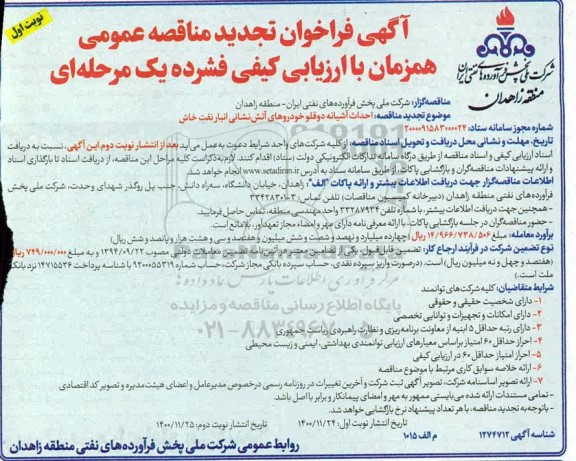 نوبت اول
آگهی فراخوان تجدید مناقصه عمومی
همزمان با ارزیابی کیفی فشرده یک مرحله‌ای
شرکت ملی پخش فرآورده‌های نفتی ایران
منطقه زاهدان
مناقصه‌گزار: شرکت ملی پخش فرآورده‌های نفتی ایران - منطقه زاهدان
موضوع تجدید مناقصه: احداث آشیانه دوقلو خودروهای آتش‌نشانی انبار نفت خاش
شماره مجوز سامانه ستاد: ۲۰۰۰۰۹۱۵۸۳۰۰۰۰۳۴
تاریخ، مهلت و نشانی محل دریافت و تحویل اسناد مناقصه: از کلیه شرکت‌های واجد شرایط دعوت به عمل می‌آید بعد از انتشار نوبت دوم این آگهی، نسبت به دریافت
اسناد ارزیابی کیفی و اسناد مناقصه از طریق درگاه سامانه تدارکات الکترونیکی دولت (ستاد) اقدام کنند. لازم به ذکر است کلیه مراحل این مناقصه، از دریافت اسناد تا بارگذاری اسناد
و ارائه پیشنهادات مناقصه‌گران و بازگشایی پاکات از طریق سامانه ستاد به آدرس www.setadiran.ir انجام خواهد شد.
اطلاعات مناقصه‌گزار جهت دریافت اطلاعات بیشتر و ارائه پاکات "الف": زاهدان، خیابان دانشگاه، سه‌راه دانش، جنب پل روگذر شهدای وحدت، شرکت ملی پخش
فرآورده‌های نفتی منطقه زاهدان (دبیرخانه کمیسیون مناقصات) تلفن تماس: ۳۳۴۲۸۳۰۱-۳
- همچنین جهت دریافت اطلاعات بیشتر، با شماره تلفن ۳۳۲۸۷۹۳۴ واحد مهندسی منطقه، تماس حاصل فرمایید.
- حضور مناقصه‌گران در جلسه بازگشایی پاکات، با ارائه معرفی‌نامه دارای مهر و امضاء مجاز تعهدآور، بلامانع است.
برآورد معامله: مبلغ ۱۴/۹۶۶/۷۳۸/۵۰۶ ریال (چهارده میلیارد و نهصد و شصت و شش میلیون و هفتصد و سی و هشت هزار و پانصد و شش ریال)
نوع تضمین شرکت در فرآیند ارجاع کار: تضمین قابل قبول یکی از تضامین معتبر آیین‌نامه تضمین معاملات دولتی مصوب ۱۳۹۴/۰۹/۲۲ به مبلغ ۷۴۹/۰۰۰/۰۰۰ ریال
(هفتصد و چهل و نه میلیون ریال) است. (درصورت واریز سپرده نقدی، حساب سپرده بانکی مجاز شرکت، حساب شماره ۹۲۰۰۰۵۵۳۱۹ با شناسه پرداخت ۱۴۷۱۵۵۳۶ نزد بانک
ملت است.)
شرایط متقاضیان: کلیه شرکت‌های توانمند
۱- دارای شخصیت حقیقی و حقوقی
۲- دارای امکانات و تجهیزات و توانایی تخصصی
۳- دارای رتبه حداقل ۵ ابنیه از معاونت برنامه‌ریزی و نظارت راهبردی ریاست جمهوری
۴- احراز حداقل ۶۰ امتیاز براساس معیارهای ارزیابی توانمندی بهداشتی، ایمنی و زیست محیطی
۵- احراز امتیاز حداقل ۶۰ در ارزیابی کیفی
۶- ارائه خلاصه سوابق کاری مرتبط با موضوع مناقصه
۷- ارائه تصویر اساسنامه شرکت، تصویر آگهی ثبت شرکت و آخرین تغییرات در روزنامه رسمی درخصوص مدیرعامل و اعضای هیئت‌مدیره و تصویر کد اقتصادی
- تمامی مستندات ارائه شده می‌بایستی ممهور به مهر و امضای پیمانکار و برابر با اصل باشد.
- باتوجه به تجدید مناقصه، با هر تعداد پیشنهاد نرخ بازگشایی خواهد شد.
تاریخ انتشار نوبت اول: ۱۴۰۰/۱۱/۲۴ تاریخ انتشار نوبت دوم: ۱۴۰۰/۱۱/۲۵
شناسه آگهی ۱۲۷۴۷۱۲ م الف ۱۰۱۵ روابط عمومی شرکت ملی پخش فرآورده‌های نفتی منطقه زاهدان